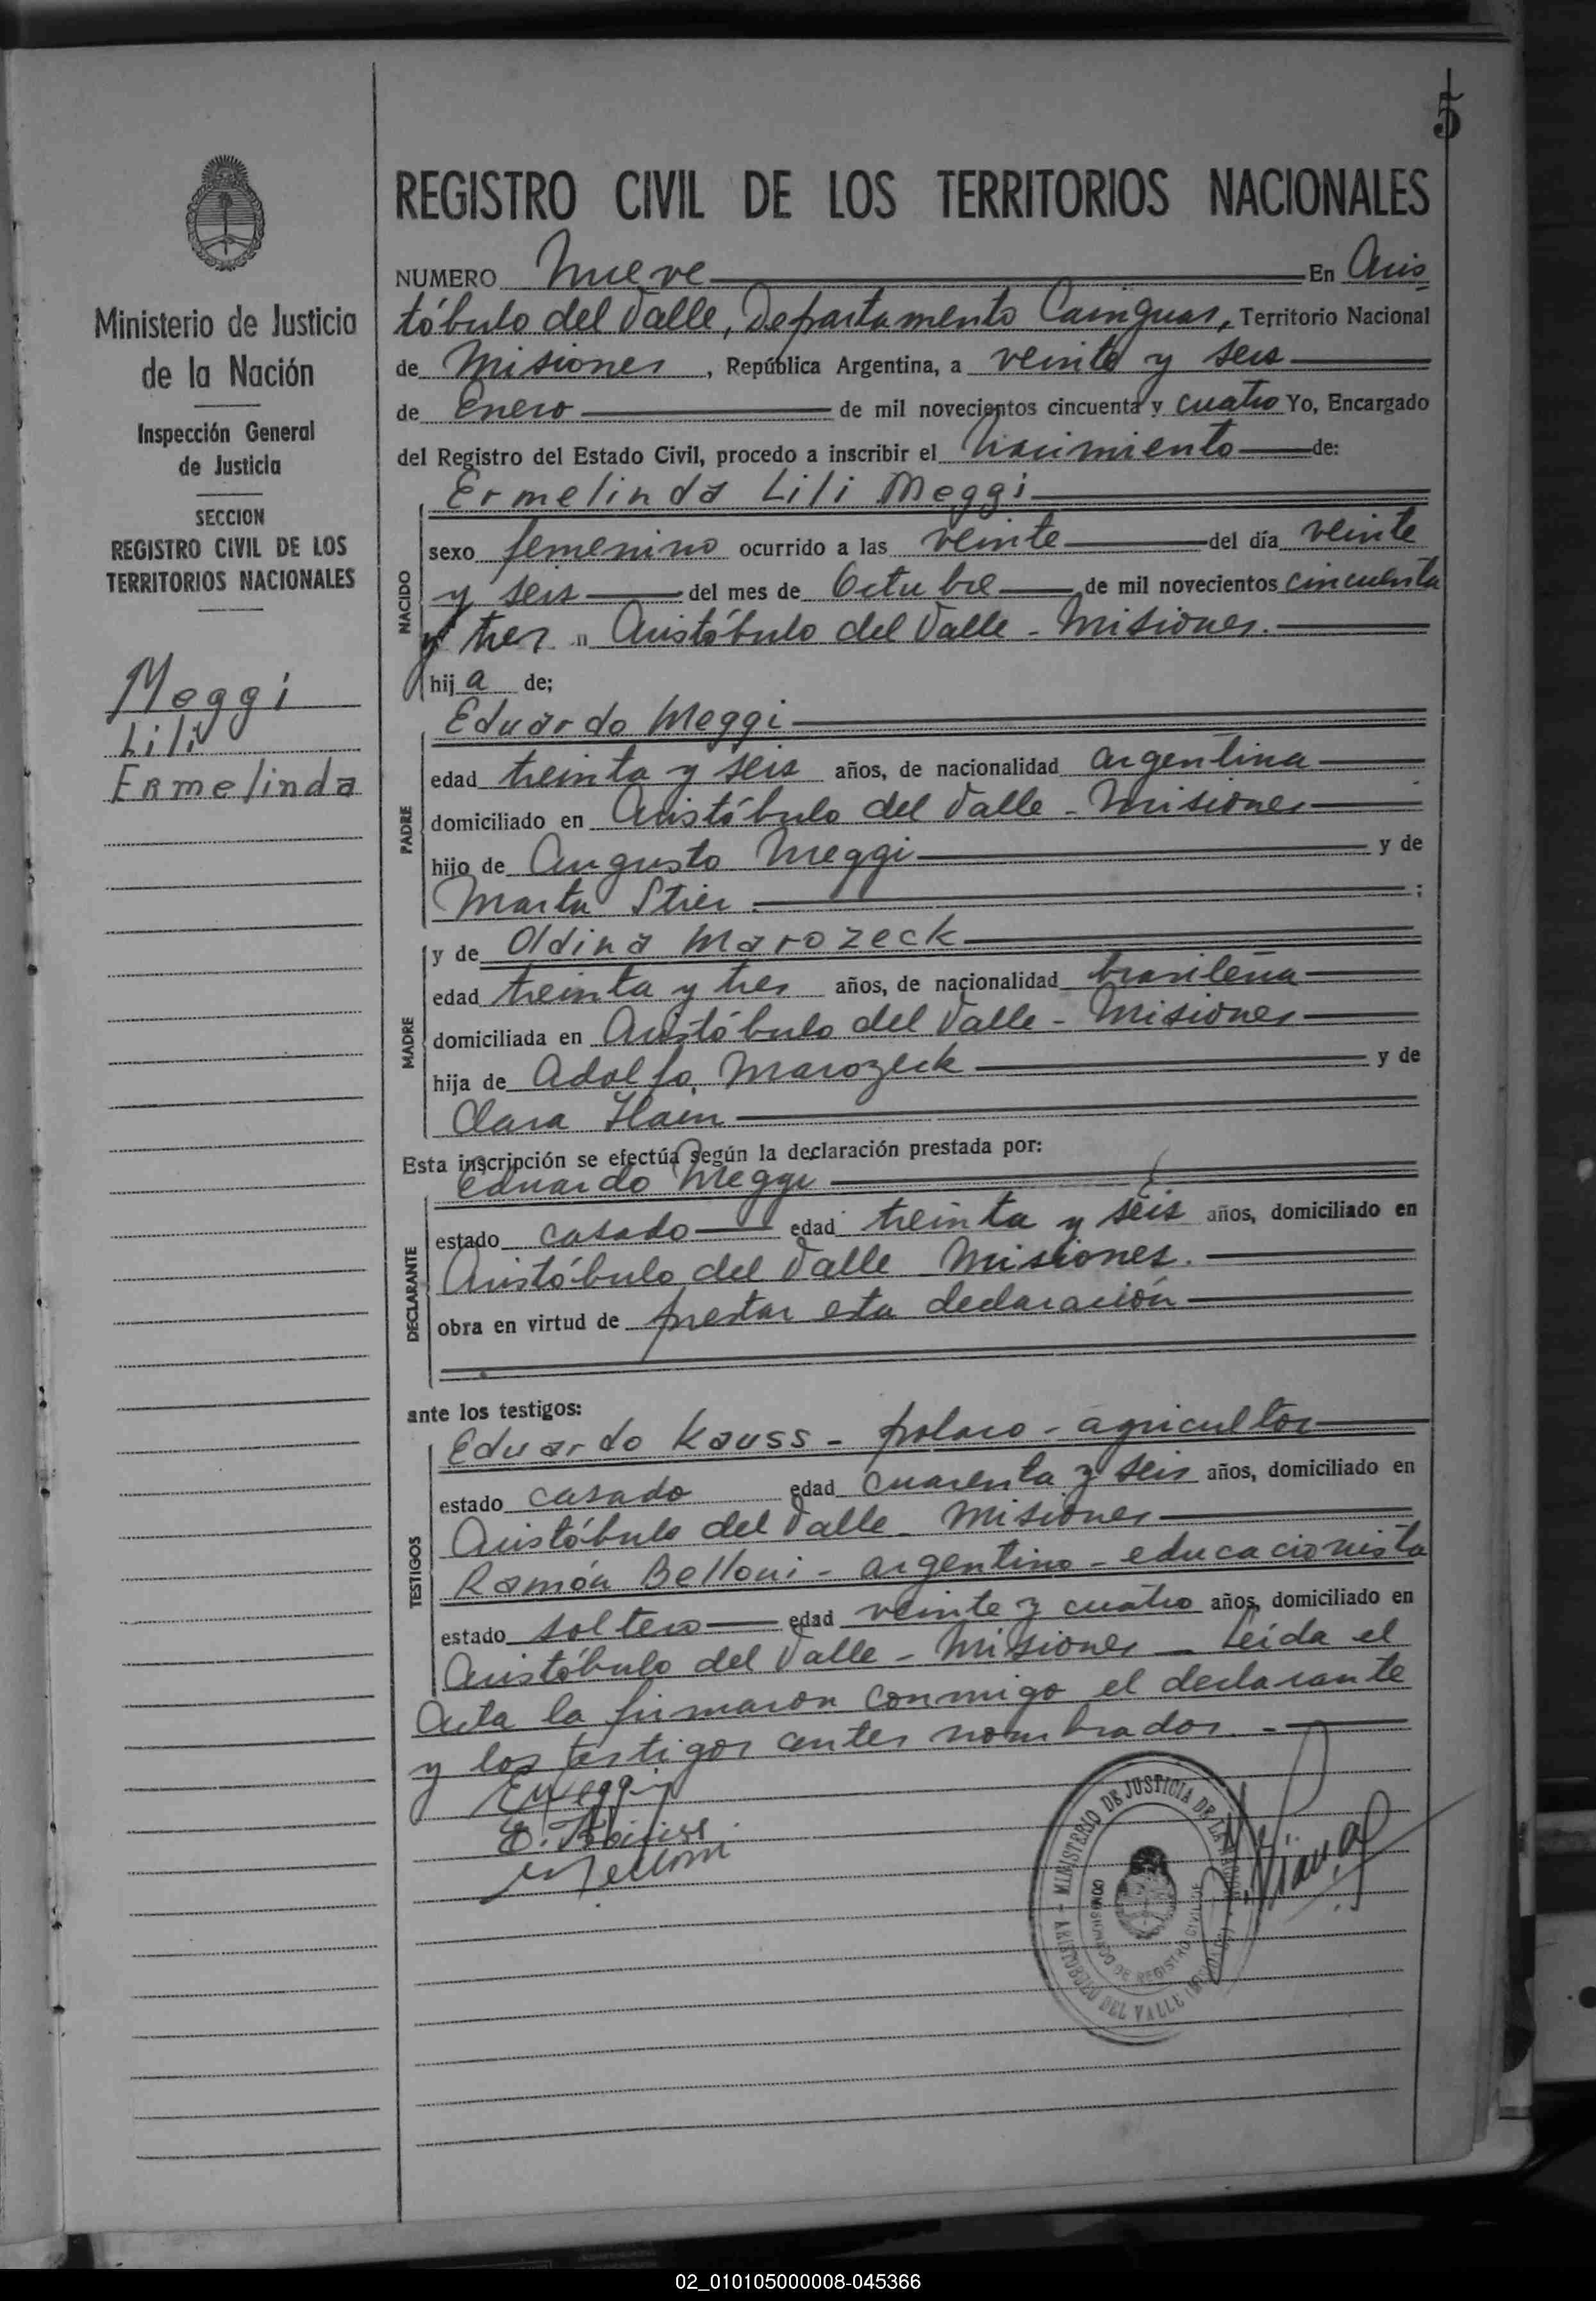 5
REGISTRO CIVIL DE LOS TERRITORIOS NACIONALES
Ministerio de Justicia
de la Nación
Inspección General
de Justicia
SECCION
REGISTRO CIVIL DE LOS
TERRITORIOS NACIONALES
Meggi
Lili
Ermelinda
NUMERO Nueve En Aris
tóbulo del Valle, Departamento Cainguas, Territorio Nacional
de Misiones, República Argentina, a veinte y seis
de Enero de mil novecientos cincuenta y cuatro Yo, Encargado
del Registro del Estado Civil, procedo a inscribir el Nacimiento de:
Ermelinda Lili Meggi
NACIDO
sexo femenino ocurrido a las veinte del día veinte
y seis del mes de Octubre de mil novecientos cincuenta
y tres n Aristóbulo del Valle - Misiones.
hija de;
Eduardo Meggi
PADRE
edad treinta y seis años, de nacionalidad argentina
domiciliado en Aristóbulo del Valle - Misiones
hijo de Augusto Meggi y de
Marta Strier ;
y de Oldina Marozeck
MADRE
edad treinta y tres años, de nacionalidad brasileña
domiciliada en Aristóbulo del Valle - Misiones
hija de Adolfo Marozeck y de
Clara
Esta inscripción se efectúa según la declaración prestada por:
Eduardo Meggi
DECLARANTE
estado casado edad treinta y seis años, domiciliado en
Aristóbulo del Valle Misiones.
obra en virtud de prestar esta declaración
ante los testigos:
Eduardo Kauss - polaco - agricultor
TESTIGOS
estado casado edad cuarenta y seis años, domiciliado en
Aristóbulo del Valle - Misiones
Ramón Belloni - argentino - educacionista
estado soltero edad veinte y cuatro años, domiciliado en
Aristóbulo del Valle - Misiones - Leída el
Acta la firmaron conmigo el declarante
y los testigos antes nombrados. -
EMeggi
Belloni
MINISTERIO DE JUSTICIA DE LA NACION
DE REGISTRO CIVIL DE
ARISTOBULO DEL VALLE (MISIONES)
02_010105000008-045366